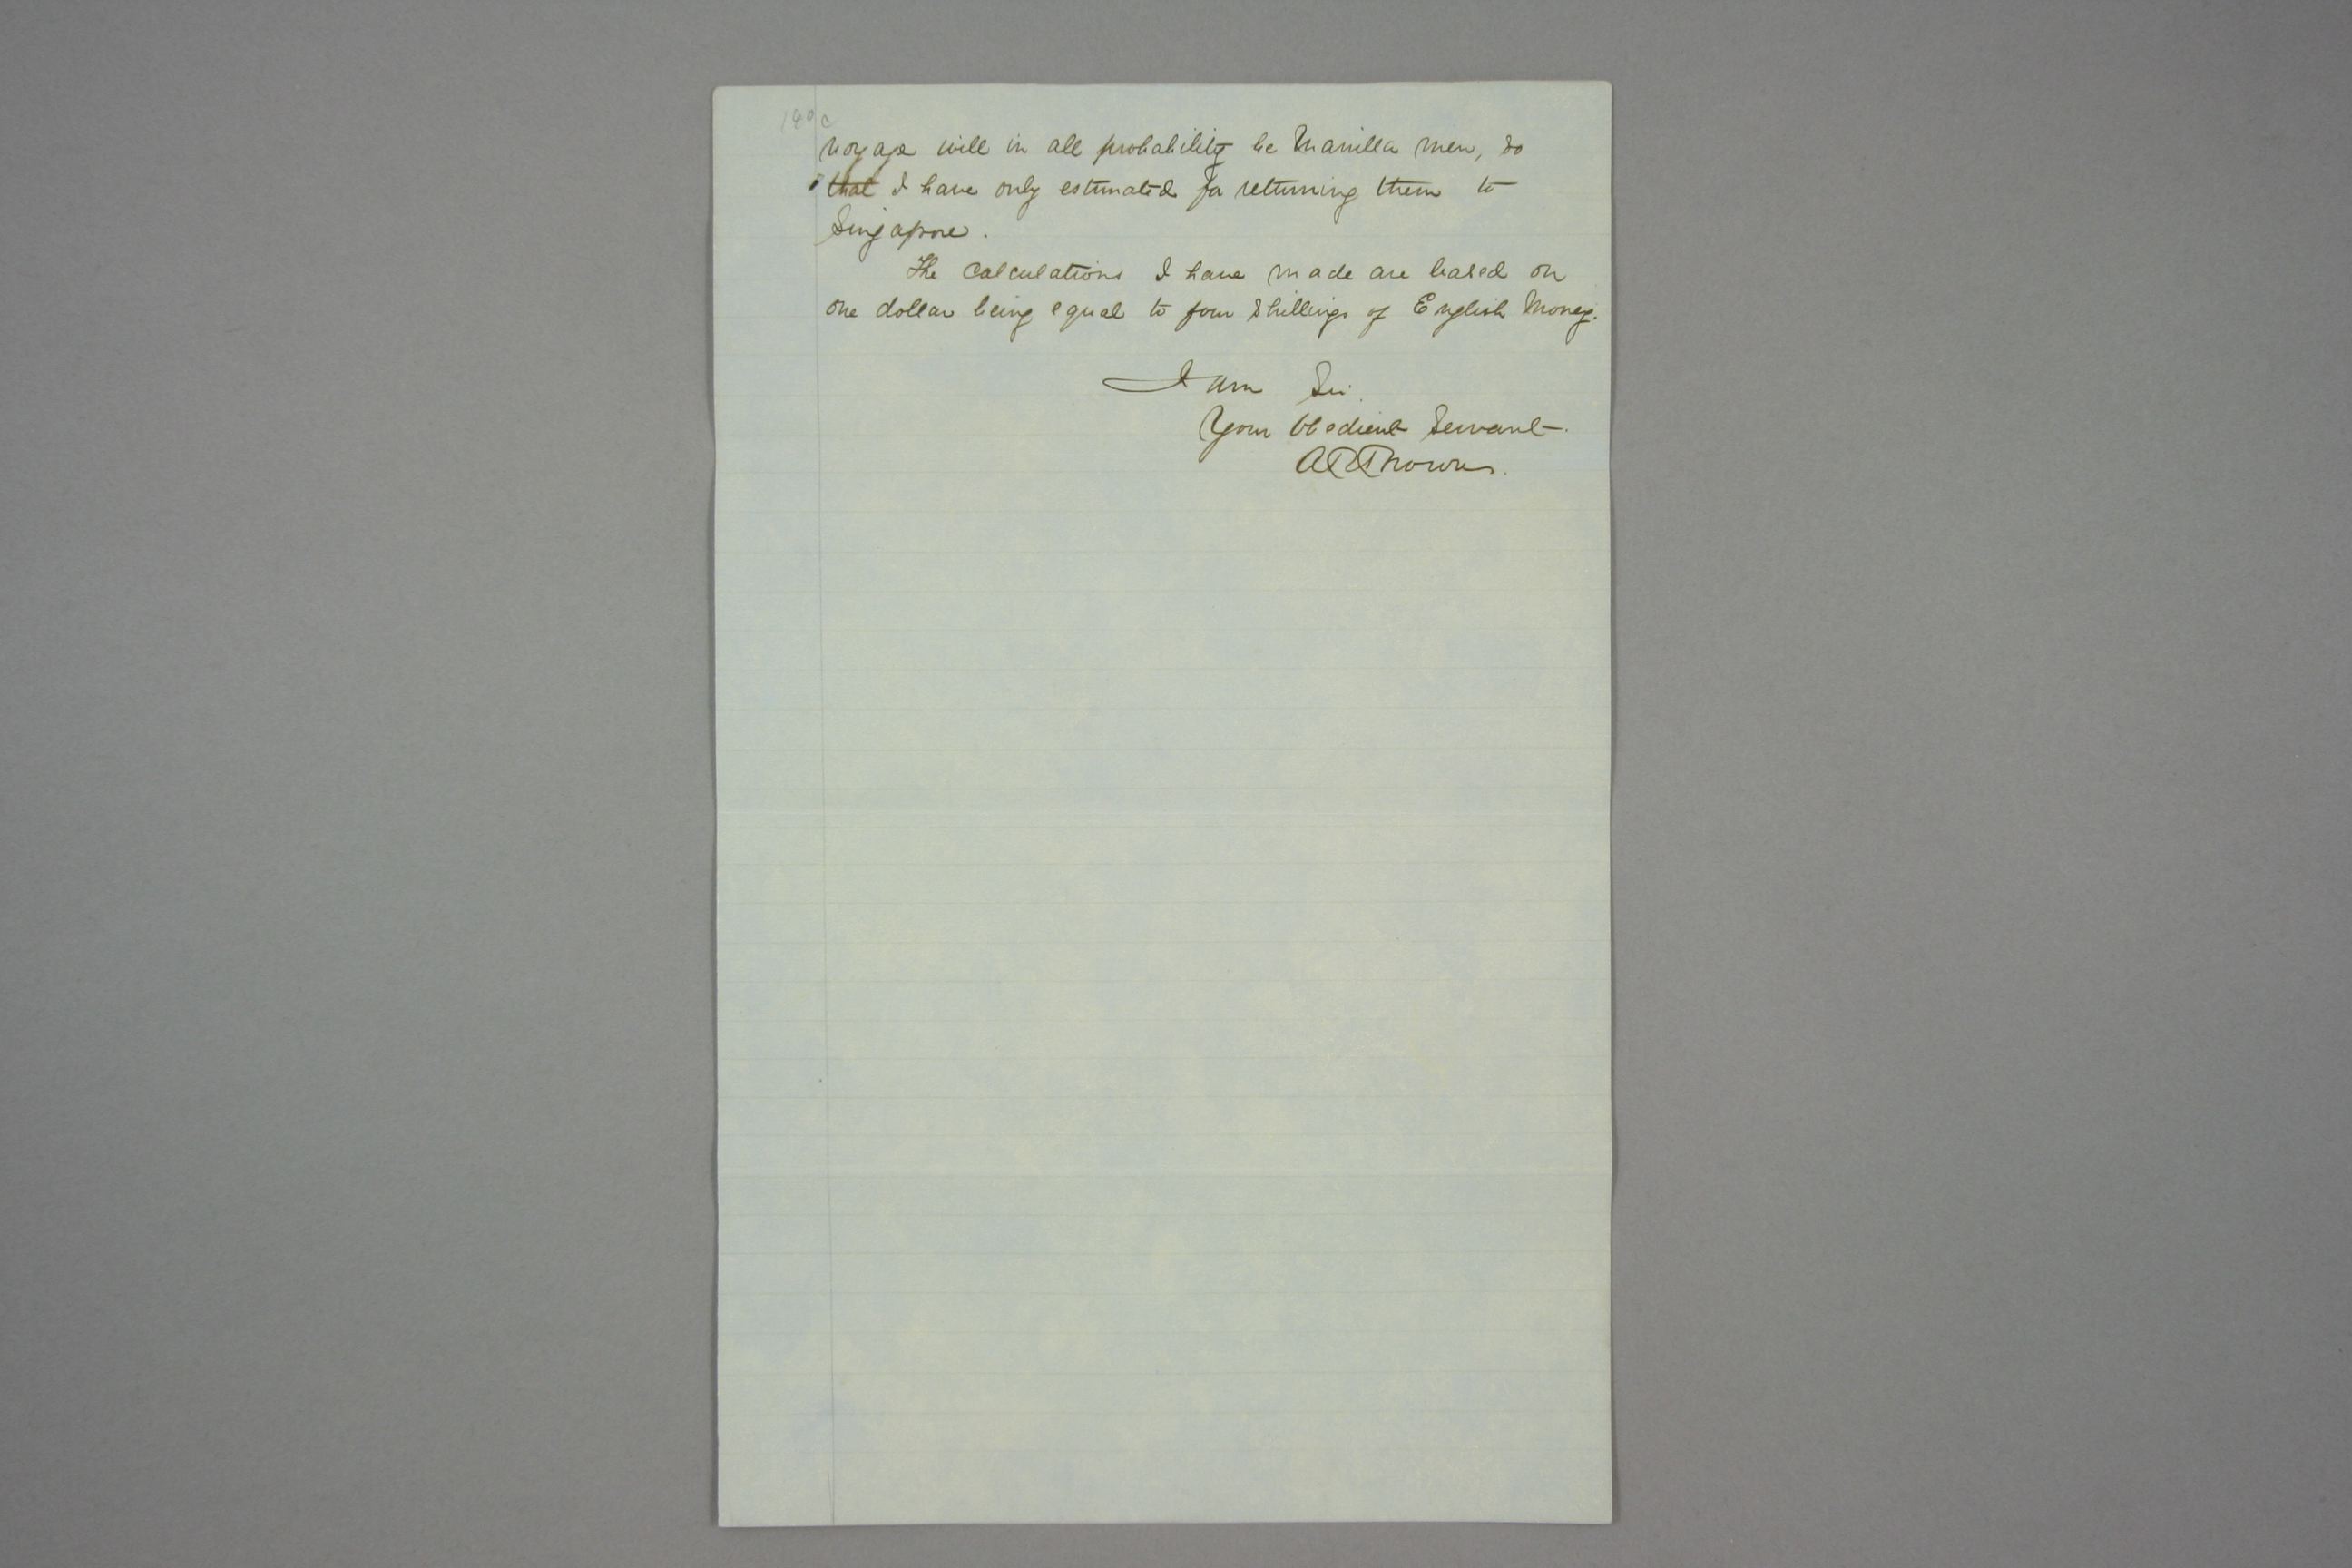 voyage will in all probability be Manilla men, so
that I have only estimated for returning them to
Singapore.
The calculations I have made are based on
one dollar being equal to four shillings of English Money.
I am Sir.
Your Obedient Servant.